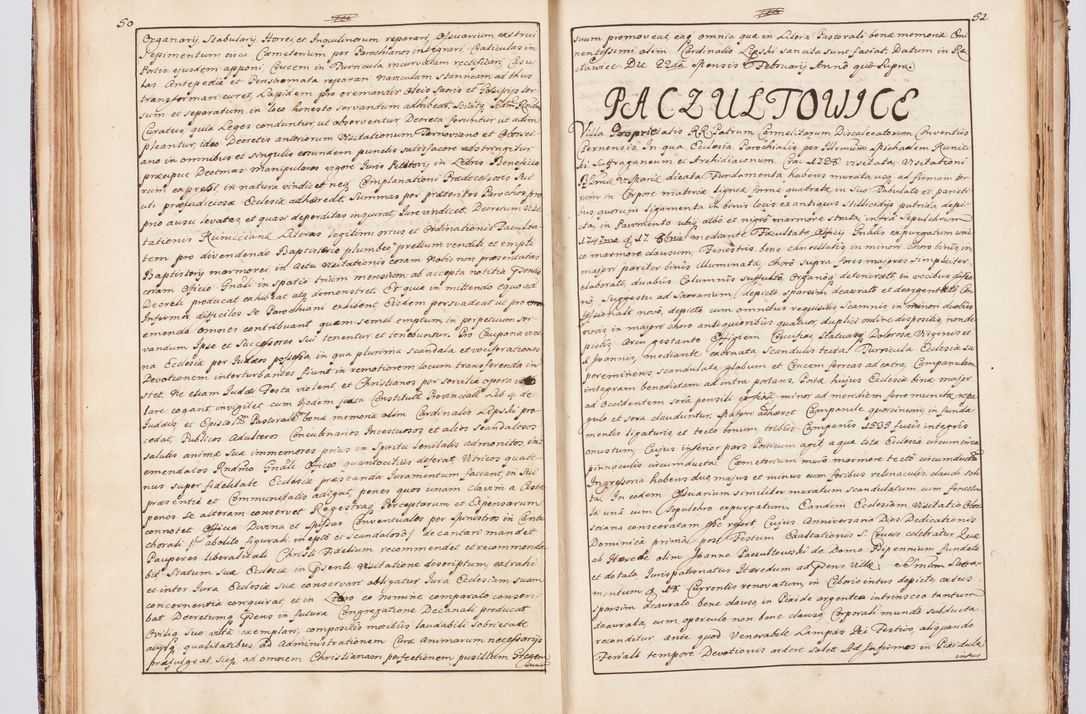 50
Organarij, Stabulary Horrei et Inquilinorum reparari, Ossuarium exstrui
Sepimentum circa Cæmeterium per Parochianos integrari, Craticulas in
Portis ejusdem apponi, Crucem in Turricula incurvatam rectificari, Casu
las Antepedia et Peristromata reparari naviculam Stanneam ad thus
transformari curet, Lapidem pro cremandis
sum et separatim in loco honesto servandum adhibeat,
Curatus, quia Leges conduntur, ut observentur Decreta feruntur ut adim
pleantur, ideo Decretis anteriorum Visitationum Tarnoviano et
ano in omnibus et singulis eorundem punctis satisfacere adstringitur
præcipue Decimas manipulares vigore Juris in Libris Beneficio
rum expressi, in natura vindicet neq Complanationi Prædecessoris Sui
uti præjudiciosæ Ecclesiæ adhæreat, Summas per præteritos Parochos pro
prio ausu levatas, et quasi deperditas inquirat, Jure vindicet. Decretum Visi
tationis Kunicianæ Literas legitimi ortus et Ordinationis Faculta
tem pro divendendo Baptisterio plumbeo pretium venditi et empti
Baptisterij marmorei, in Actu Visitationis coram Nobis non præsentatas
coram Officio Gnali in Spatio trium mensium ab accepta notitia Psentis
Decreti producat exhibeat atq demonstret. Et quia in mittendo equo ad
Infirmos difficiles se Parochiani exhibent, Eisdem persuadeat ut pro
emendo omnes contribuant quem semel emptum in perpetuum ser
vandum Ipse et Successores Sui tenentur et tenebuntur. Pro Caupona vici
na Ecclesiæ per Judæos possessa, in qua plurima Scandala et vociferationes
Devotionem interturbantes fiunt in remotiorem locum transferendo in
stet, Ne etiam Judæi Festa violent, et Christianos per servilia opera
lare cogant, invigilet cum Iisdem juxta Constitut: Provinciale Lib 4. de
Judæis, et Epistol Pastoralem bonæ memoriæ olim Cardinalis Lipski pro
cedat, Publicos Adulteros Concubinarios Incestuosos et alios Scandalosos
salutis animæ Suæ immemores prius in Spiritu lenitatis admonitos, in
emendatos Rndmo Gnali Officio quantocitius deferat, Vitricos quate
nus super fidelitate Ecclesiæ præstandæ Juramentum faciant, in Sui
præsentia et Communitatis adigat, penes quos unam clavim a Cista
penes Se alteram conservet Regestraq Perceptorum et Expensarum
connotet Officia Divina et Spissus Conventuales per Ministros in Cantu
chorali / abolito figurali inepto et Scandaloso / decantari mandet
Pauperes liberalitati Christi Fidelium recommendet et recommenda
bit Statum Suæ Ecclesiæ in Psente Visitatione descriptum, extrahi
et inter Jura Ecclesiæ Suæ conservari obligatur Jura Ecclesiam Suam
concernentia conquirat, et in Libro eo nomine comparato conser
bat Decretumq Psens in futura Congregatione Decanali producat
Oviliq Suo vitâ exemplari, compositis moribus laudabili Sobrietate
alijsq qualitatibus, ad Administrationem Curæ Animarum necessarijs
præfulgeat, Sicq ad omnem Christianam perfectionem pusillum Gregem
suum
52
suum promoveat, eaq omnia quæ in Litera Pastorali bonæ memoriæ Emi
nentissimi olim Cardinalis Lipski sancita sunt, faciat. Datum in Ra
clawice Die 22da Mensis Februarij Anno quo Supra.
PACZULTOWICE
Villa Proprietatis RR Patrum Carmelitarum Discalceatorum Conventus
Cernensis In qua Ecclesia Parochialis per Illrmum Michaelem Kunic
ki Suffraganeum et Archidiaconum Crac: 1728 visitata, Visitationi
B[Vmæ] Mariæ dicata Fundamenta habens murata usq ad firmam ter
ram in Corpore materiæ ligneæ formæ quadratæ, in Suo Tabulatu et parieti
bus quorum ligamenta in binis locis ex antiquis Stillicidijs putrida, depi
cta, in Pavimento ubiq albo et nigro marmore Strata, intra Sepulchrum
1747mo mediante Facultate Officij Gnalis expurgatum uni
co marmore clausum, Fenestris bene cancellatis, in minori Choro binis, in
majori pariter binis illuminata, choro Supra fores majores Simpliciter
elaborato, duabus Columnis Suffulto, Organoq deteriorato in vocibus
no Suggestu ad Sacrarium, depicto Sparsim deaurato et deargentato Con
fessionali novo, depicto cum omnibus requisitis, Scamnis in minori duobus
novis, in majore choro antiquioribus quatuor, duplici ordine dispositis, nonde
pictis, Arcu gestante Effigiem Crucifixi, Statuasq Dolorosæ Virginis et
S Joannis, mediante exornata, Scandulis tecta, Turricula Ecclesiæ su
pereminens, Scandulata, globum et Crucem ferreas ad extra, Campanulam
integram benedictam ad intra portans, Porta hujus Ecclesiæ bina major
ad Occidentem Sera pensili minor ad meridiem ferro munita, repa
gulo et Sera clauduntur, Spatio adhæret Campanile quorcineum, in funda
mentis ligaturis, et tecto bonum, tribus Campanis 1535 fusis integris
onustum, Cujus inferior pars Porticum agit, a qua tota Ecclesia circumcirca
pinnaculis circumducta. Cæmeterium muro marmore tecto circumductum
Ingressoria habens duo majus et minus cum foribus retinaculis claudi Soli
ta, In eodem Ossuarium similiter muratum Scandulatum cum fenestra
la una cum Sepulchro expurgatum. Eandem Ecclesiam Visitatio Kuni
ciana consecratam refert, Cujus Anniversaria Dies Dedicationis
Dominica prima post Festum Exaltationis S: Crucis celebratur, Quæ
ab Hærede olim Joanne Paczultowski de Domo Bipennium fundata
et dotata, Jurispatronatus Hæredum ad Psens Villæ. Smum Sacra
mentum q 15 Currentis renovatum, in Ciborio intus depicto, extus
Sparsim deaurato bene clauso, in Pixide argentea intrinsece tantum
deaurata, cum operculo non bene clauso, Corporali mundo Subducta
reconditur, ante quod Venerabile Lampas Die Festivo, aliquando
Feriali tempore Devotionis ardere Solet, Ad Infirmos in Pixidula
intus